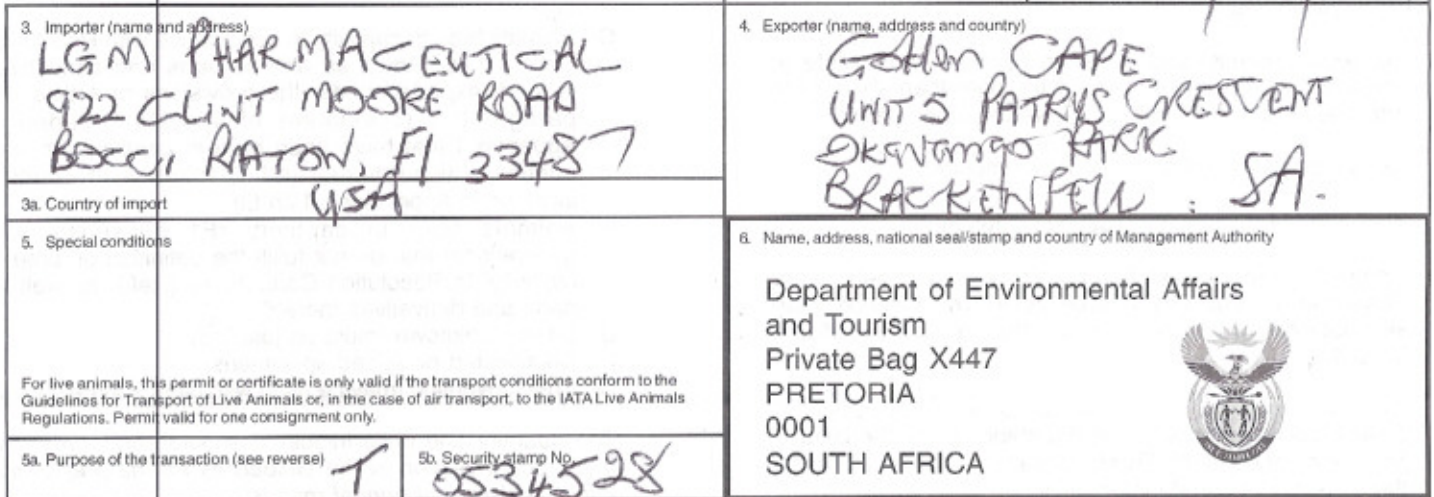 3. Importer (name and address)
LGM PHARMACEUTICAL
922 CLINT MOORE ROAD
RATON, Fl 33487
3a. Country of import USA
4. Exporter (name, address and country)
Golden CAPE
UNIT 5 PATRYS CRESCENT
Okavango PARK
BRACKENFELL. SA.
5. Special conditions
For live animals, this permit or certificate is only valid if the transport conditions conform to the
Guidelines for Transport of Live Animals or, in the case of air transport, to the IATA Live Animals
Regulations. Permit valid for one consignment only.
5a. Purpose of the transaction (see reverse) T
5b. Security stamp No. 0534528
6. Name, address, national seal/stamp and country of Management Authority
Department of Environmental Affairs
and Tourism
Private Bag X447
PRETORIA
0001
SOUTH AFRICA